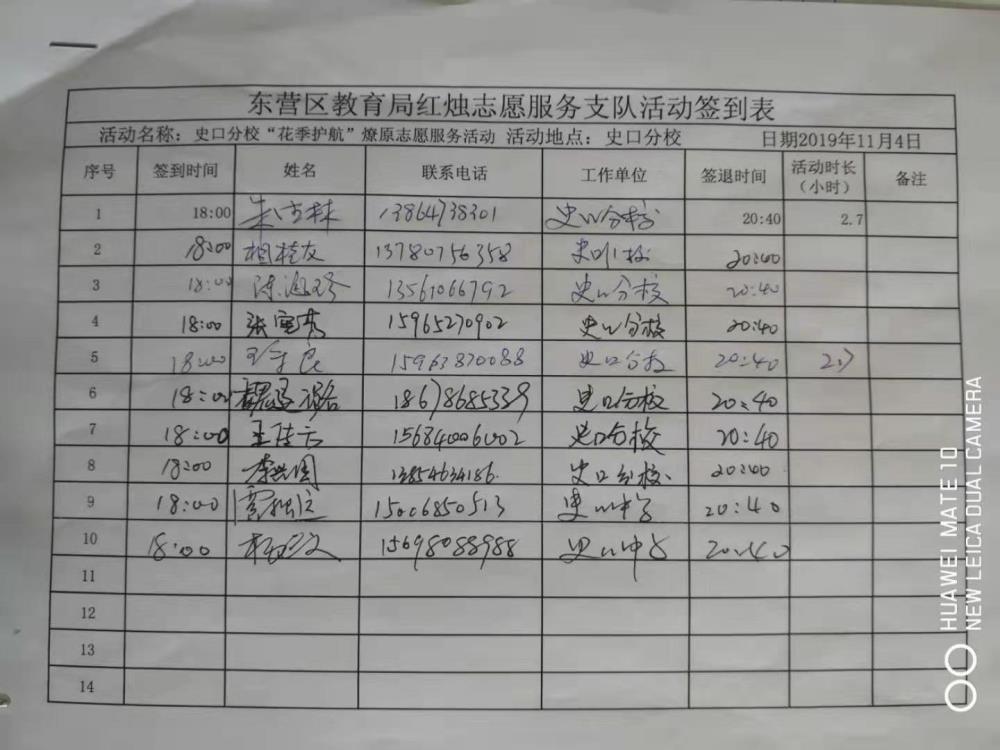 东营区教育局红烛志愿服务支队活动签到表
活动名称：史口分校“花季护航”燎原志愿服务活动 活动地点：史口分校 日期2019年11月4日
序号 签到时间 姓名 联系电话 工作单位 签退时间 活动时长（小时） 备注
1 18:00 13864738301 史口分校 20:40 2.7
2 18:00 相桂友 13780756358 史口分校 20:40
3 18:00 13561066792 史口分校 20:40
4 18:00 15965270902 史口分校 20:40
5 18:00 15963870088 史口分校 20:40 2.7
6 18:00 18678685339 史口分校 20:40
7 18:00 15684006002 史口分校 20:40
8 18:00 13854634186 史口分校 20:40
9 18:00 15006850513 史口中学 20:40
10 18:00 15698088988 史口中学 20:40
11
12
13
14
HUAWEI MATE 10
NEW LEICA DUAL CAMERA